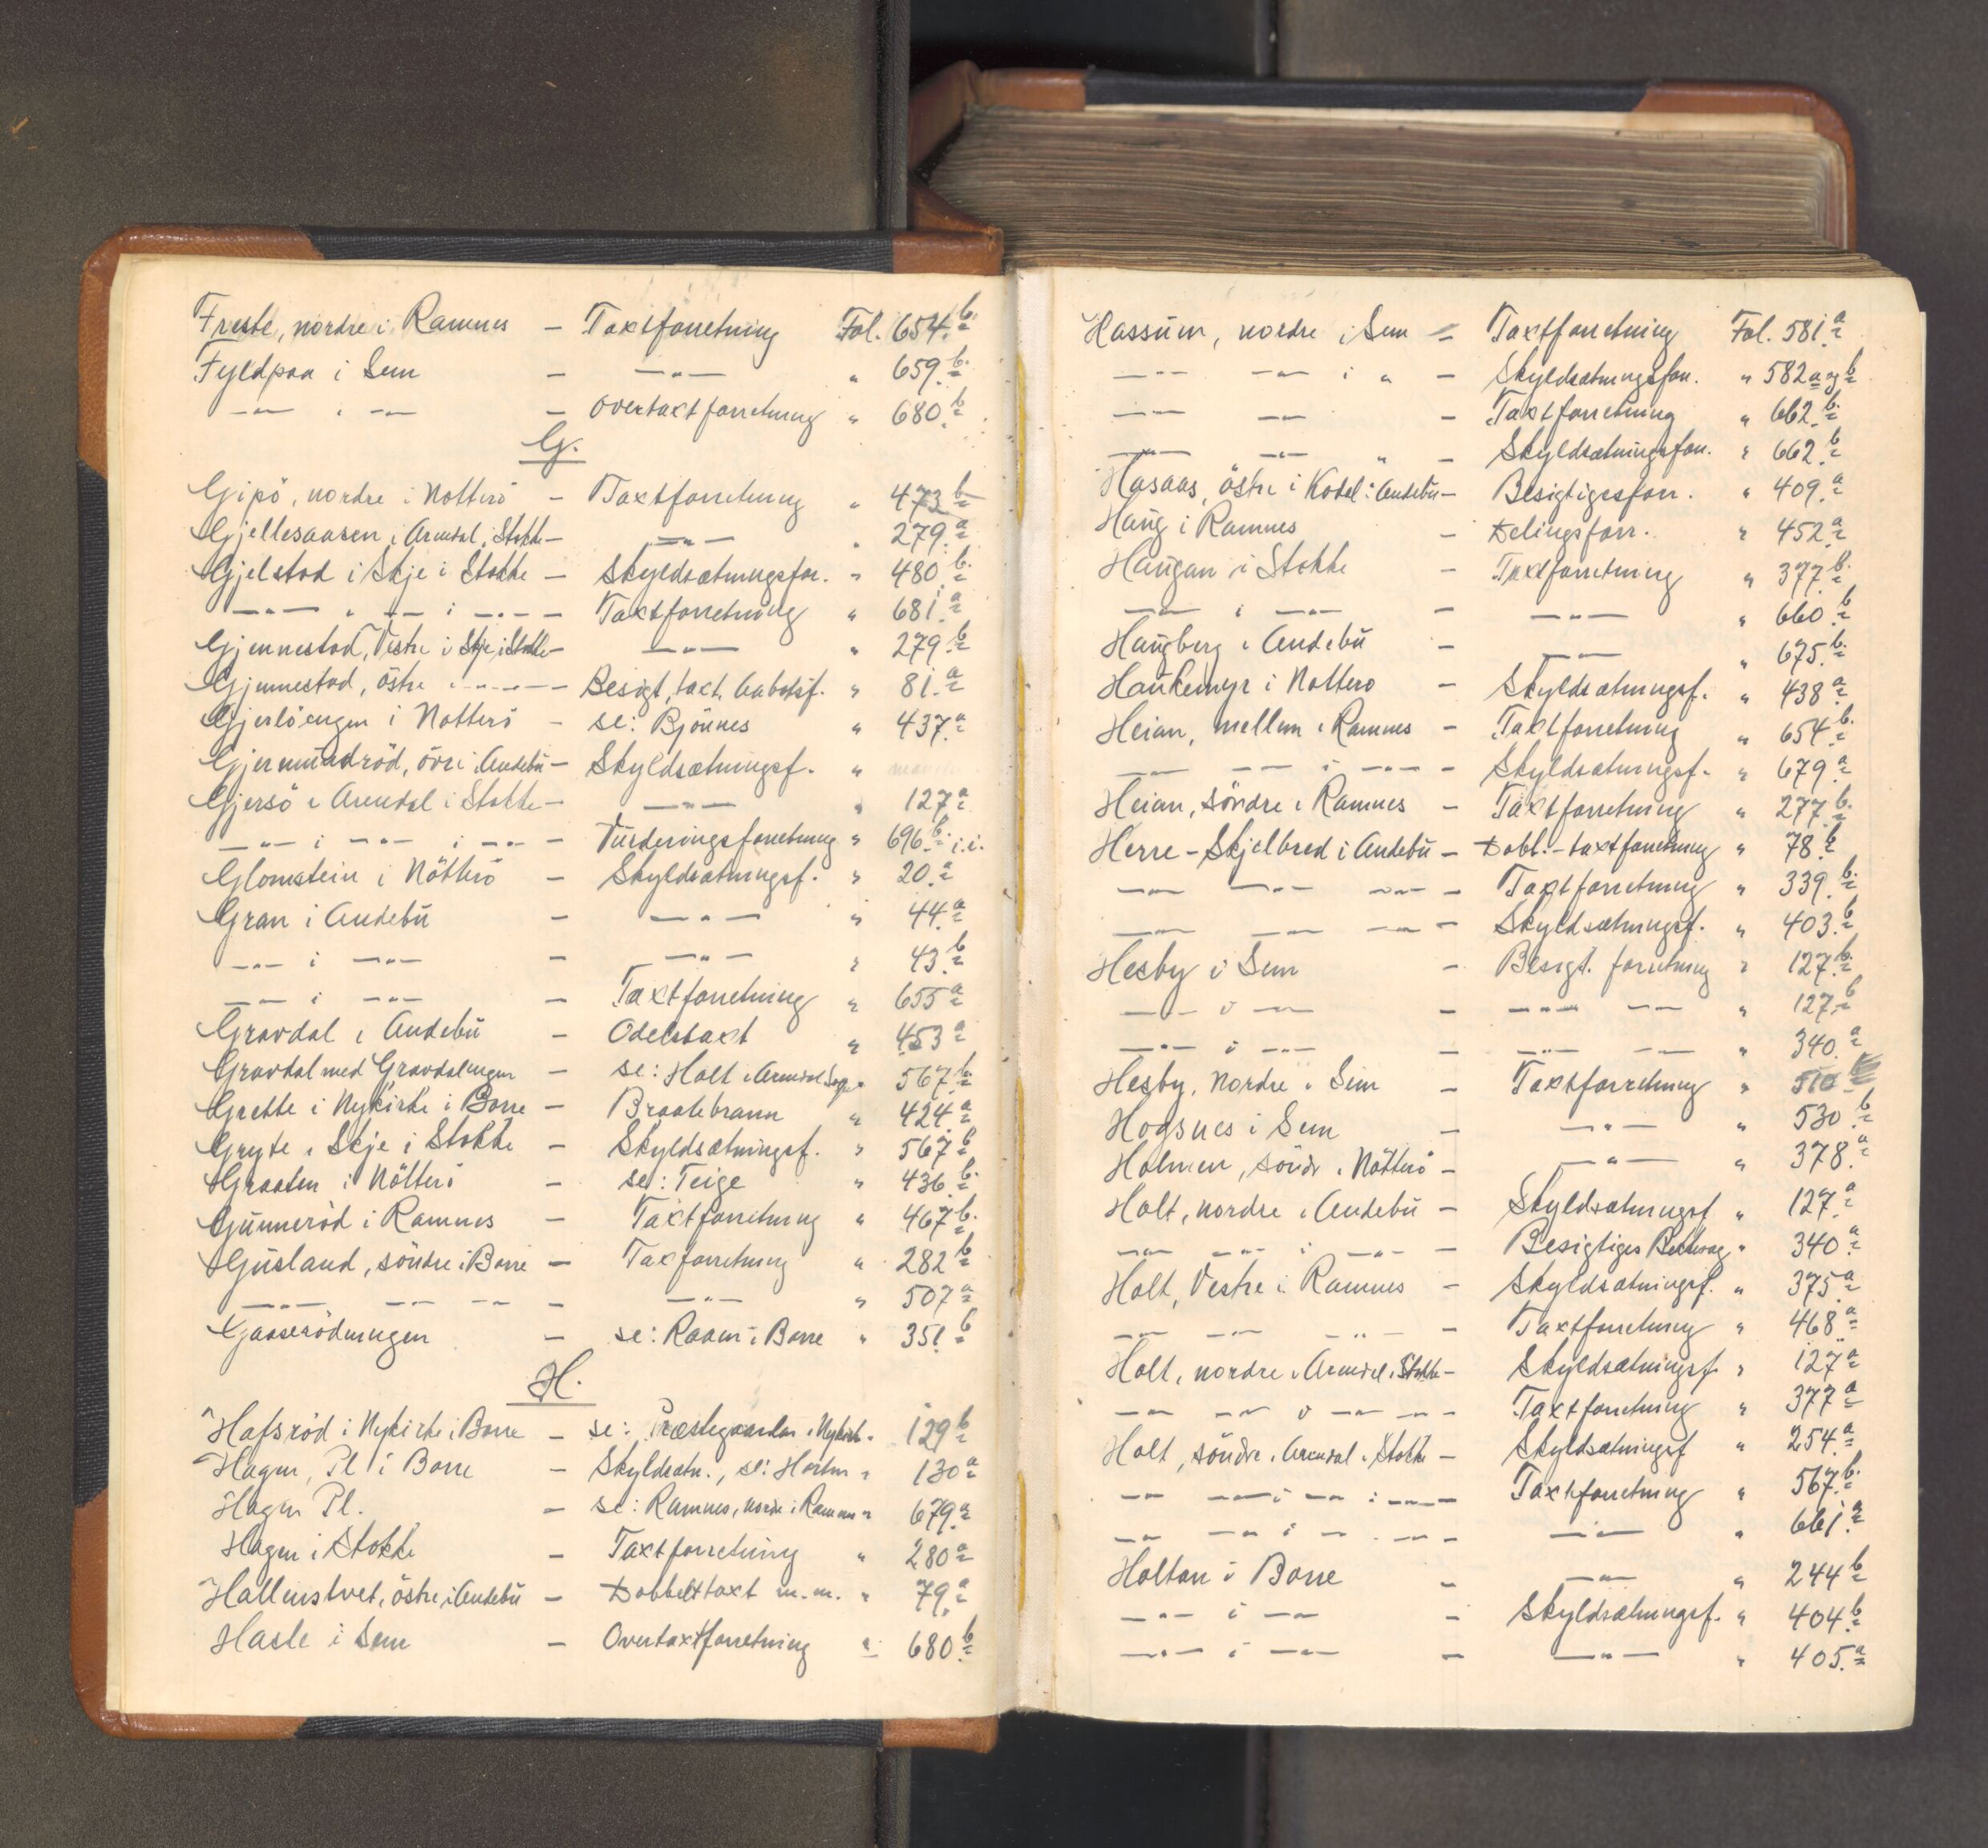 Freste, nordre i Ramnes — Taxtforretning Fol. 654.b
Fyldpaa i Sem — —"— " 659.b
—"— " —"— — Overtaxtforretning " 680.b
G.
Gipö, nordre i Nötterö — Taxtforretning " 473 b
Gjellesaasen i Arendal i Stokke — —"— " 279.a
Gjelstad i Skje i Stokke — Skyldsætningsfor. " 480.b
—"— " —"— i —"— — Taxtforretning " 681.a
Gjennestad, Vestre i Skje i Stokke — —"— " 279.b
Gjennestad, östre —"— — Besigt., taxt. " 81.a
Gjerlöengen i Nötterö — se: Bjönnes " 437.a
Gjermundröd, övre i Andebu — Skyldsætningsf. "
Gjersö i Arendal i Stokke — —"— " 127.a
—"— i —"— i —"— — Vurderingsforretning " 696.b. i.i.
Glomstein i Nötterö — Skyldsætningsf. " 20.a
Gran i Andebu — —"— " 44.a
—"— i —"— — —"— " 43.b
—"— i —"— — Taxtforretning " 655.a
Gravdal i Andebu — Odelstaxt " 453 a
Gravdal med Gravdalengen — se: Holt i Arendal " 567.b
Grette i Nykirke i Borre — Braatebrann " 424.a
Gryte i Skje i Stokke — Skyldsætningsf. " 567.b
Graaten i Nötterö — se: Teige " 436.b
Gunneröd i Ramnes — Taxtforretning " 467 b.
Gusland, söndre i Borre — Taxforretning " 282 b
—"— —"— —"— — —"— " 507 a
Gaaserödningen — se: Raaen i Borre " 351.b
H.
Hafsröd i Nykirke i Borre — se: Præstegaarden i Nykirk. " 129 b
Hagen, Pl. i Borre — Skyldsætn., se: Horten " 130 a
Hagen Pl. — se: Ramnes, nordr. i Ramnes " 679.a
Hagen i Stokke — Taxtforretning " 280 a
Hallenstvet, östre i Andebu — Dobbelttaxt m.m. " 79.a
Hasle i Sem — Overtaxtforretning " 680.b
Hassum, nordre i Sem — Taxtforretning Fol. 581.a
—"— —"— i " — Skyldsætningsforr. " 582 a og b
—"— —"— — Taxtforretning " 662.b
—"— —"— " — Skyldsætningsforr. " 662.b
Hasaas, östre i Kodal i Andebu — Besigtigesforr. " 409.a
Haug i Ramnes — Delingsforr. " 452.a
Haugan i Stokke — Taxtforretning " 377.b
—"— i —"— — —"— " 660.b
Haugberg i Andebu — —"— " 675.b
Haukemyr i Nötterö — Skyldsætningsf. " 438 a
Heian, mellem i Ramnes — Taxtforretning " 654.b
—"— —"— i —"— — Skyldsætningsf. " 679.a
Heian, söndre i Ramnes — Taxtforretning " 277.b
Herre-Skjelbred i Andebu — Dobl.-taxtforretning " 78.b
—"— —"— —"— — Taxtforretning " 339.b
—"— —"— —"— — Skyldsætningsf. " 403.b
Hesby i Sem — Besigt. forretning " 127.b
—"— i —"— — —"— —"— " 127.b
—"— i —"— — —"— —"— " 340.a
Hesby, Nordre i Sem — Taxtforretning " 510 b
Hogsnes i Sem — —"— " 530.b
Holmen, söndr. i Nötterö — —"— " 378.a
Holt, nordre i Andebu — Skyldsætningsf. " 127.a
—"— —"— i —"— — Besigtiges " 340.a
Holt, Vestre i Ramnes — Skyldsætningsf. " 375.a
—"— —"— —"— — Taxtforretning " 468 a
Holt, nordre i Arendal i Stokke — Skyldsætningsf. " 127 a
—"— —"— i —"— —"— — Taxtforretning " 377 a
Holt, söndre i Arendal i Stokke — Skyldsætningsf. " 254.a
—"— —"— i —"— i —"— — Taxtforretning " 567.b
—"— —"— i —"— —"— — —"— " 661.a
Holtan i Borre — —"— " 244 b
—"— i —"— — Skyldsætningsf. " 404.b
—"— i —"— — —"— " 405.a